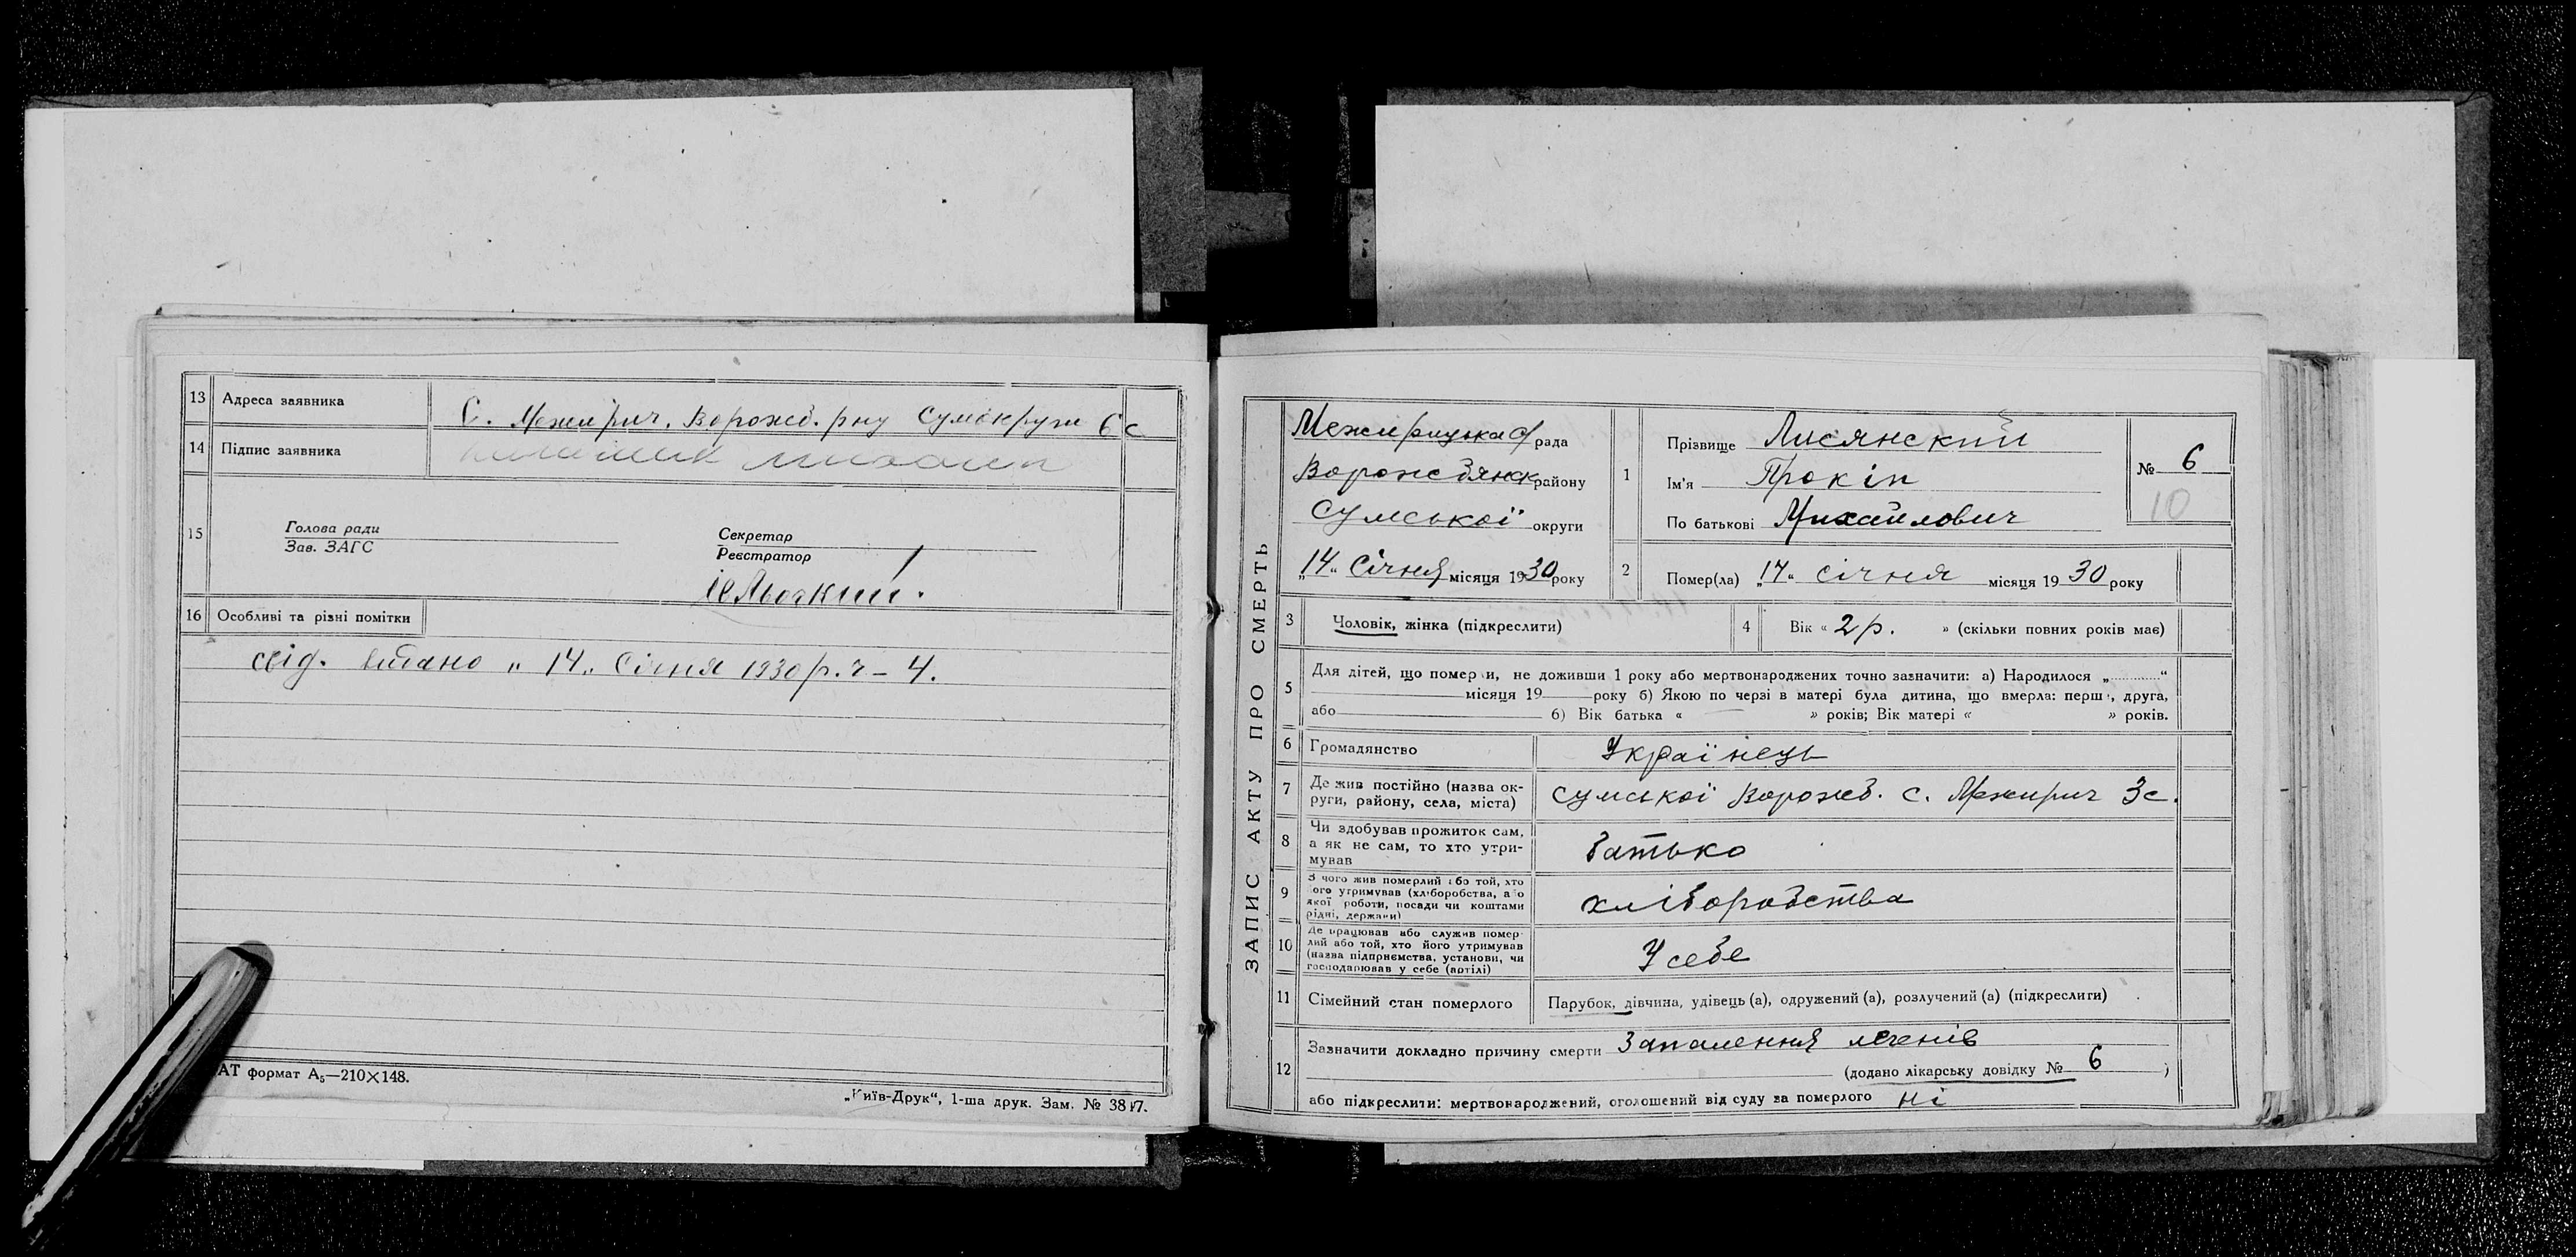 13 Адреса заявника С. Межирич. Ворожб. рну Сумокруги 6 с
14 Підпис заявника
15 Голова ради
Зав. ЗАГС
Секретар
Реєстратор
16 Особливі та різні помітки
свід. видано „ 14 „ Січня 1930 р. ч – 4.
АТ формат А₅—210×148.
„Київ-Друк“, 1-ша друк. Зам. №
ЗАПИС АКТУ ПРО СМЕРТЬ
Межирицька с/рада
Ворожбянск району
Сумської округи
„14„ Січня місяця 1930 року
1 Прізвище Лисянский
Ім'я Прокіп
По батькові Михайлович
№ 6
10
2 Помер(ла) „14„ січня місяця 1930 року
3 Чоловік, жінка (підкреслити)
4 Вік « 2 р. » (скільки повних років має)
5 Для дітей, що помер и, не доживши 1 року або мертвонароджених точно зазначити: а) Народилося „ “
місяця 19 року б) Якою по черзі в матері була дитина, що вмерла: перш , друга,
або 6) Вік батька « » років; Вік матері « » років.
6 Громадянство Українець
7 Де жив постійно (назва ок-
руги, району, села, міста) Сумської Ворожб. с. Межирич 3 с.
8 Чи здобував прожиток сам,
а як не сам, то хто утри-
мував батько
9 З чого жив померлий або той, хто
його утримував (хліборобства, або
якої роботи, посади чи коштами
рідні, держави) хліборобства
10 Де працював або служив помер-
лий або той, хто його утримував
(назва підприємства, установи, чи
господарював у себе (артілі) У себе
11 Сімейний стан померлого Парубок, дівчина, удівець (а), одружений (а), розлучений (а) (підкреслити)
12 Зазначити докладно причину смерти Запалення легенів
(додано лікарську довідку № 6 )
або підкреслити: мертвонароджений, оголошений від суду за померлого ні